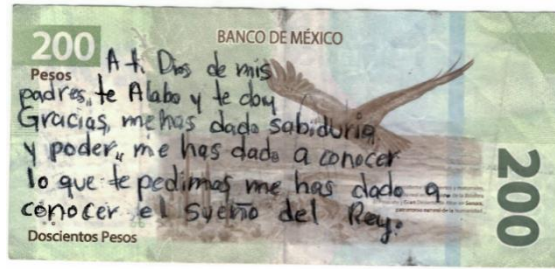 200
BANCO DE MÉXICO
Pesos
A ti Dios de mis
padres, te Alabo y te doy
Gracias, me has dado sabiduria
y poder, me has dado a conocer
lo que te pedimos me has dado a
conocer el sueño del Rey.
Doscientos Pesos
200